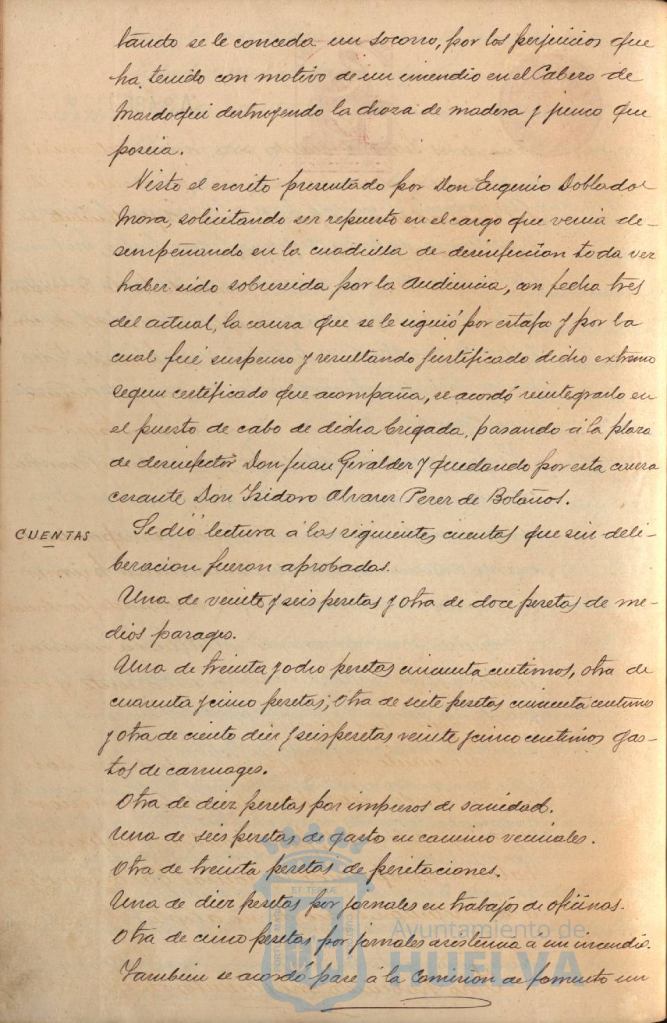 tando se le conceda un socorro, por los perjuicios que
ha tenido con motivo de un incendio en el Cabezo de
Mardoqui destruyendo la choza de madera y junco que
poseia.
Visto el escrito presentado por Don Eugenio Doblado
Mora, solicitando ser repuesto en el cargo que venia de-
sempeñando en la cuadrilla de desinfeccion toda vez
haber sido sobreseida por la Audiencia, con fecha tres
del actual, la causa que se le siguió por estafa y por la
cual fué suspenso y resultando justificado dicho extremo
segun certificado que acompaña, se acordó reintegrarlo en
el puesto de cabo de dicha brigada, pasando á la plaza
de desinfector Don Juan Giralder y quedando por esta causa
cesante Don Isidoro Alvarez Perez de Bolaños.
CUENTAS
Se dió lectura á las siguientes cuentas que sin deli-
beracion fueron aprobadas.
Una de veinte y seis pesetas y otra de doce pesetas de me-
dios parages.
Una de treinta y ocho pesetas cincuenta centimos, otra de
cuarenta y cinco pesetas; otra de siete pesetas cincuenta centimos
y otra de ciento diez y seis pesetas veinte y cinco centimos gas-
tos de carruages.
Otra de diez pesetas por impresos de sanidad.
Una de seis pesetas de gasto en camino vecinales.
Otra de treinta pesetas de peritaciones.
Una de diez pesetas por jornales en trabajos de oficinas.
Otra de cinco pesetas por jornales asistencia a un incendio.
Tambien se acordó pase á la Comision de fomento un
Ayuntamiento de
HUELVA